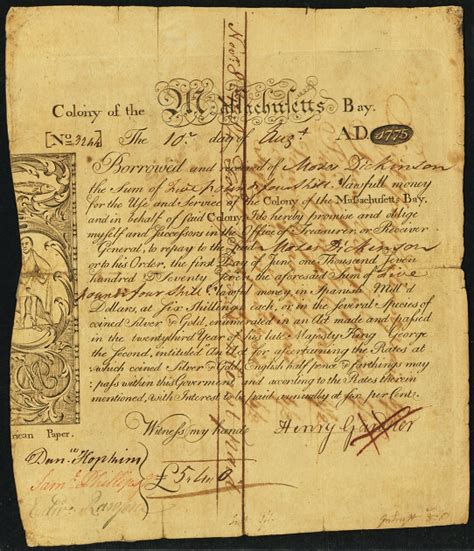 Colony of the Massachusetts Bay.
[No 3244 The 10th day of Augst A.D. 1775
Borrowed and received of Moses Dickinson
the Sum of five pounds four shills lawfull money
for the Use and Service of the Colony of the Massachusetts Bay,
and in behalf of said Colony, I do hereby promise and oblige
myself and Successors in the Office of Treasurer or Receiver
General, to repay to the said Moses Dickinson
or to his Order, the first Day of June one Thousand seven
hundred & Seventy seven the aforesaid Sum of five
pounds four shills lawful money in Spanish Mill'd
Dollars, at six Shillings each, or in the several Species of
coined Silver & Gold, enumerated in an Act made and passed
in the twenty third Year of his late Majesty King George
the Second, intituled An Act for ascertaining the Rates at
which coined Silver & Gold, English half pence & farthings may
pass within this Goverment and according to the Rates therein
mentioned, with Interest to be paid annually at six per cent.
rican Paper.
Witness my hand
Henry Gardner
Danl Hopkins
Saml Phillips
£5,,4,,0